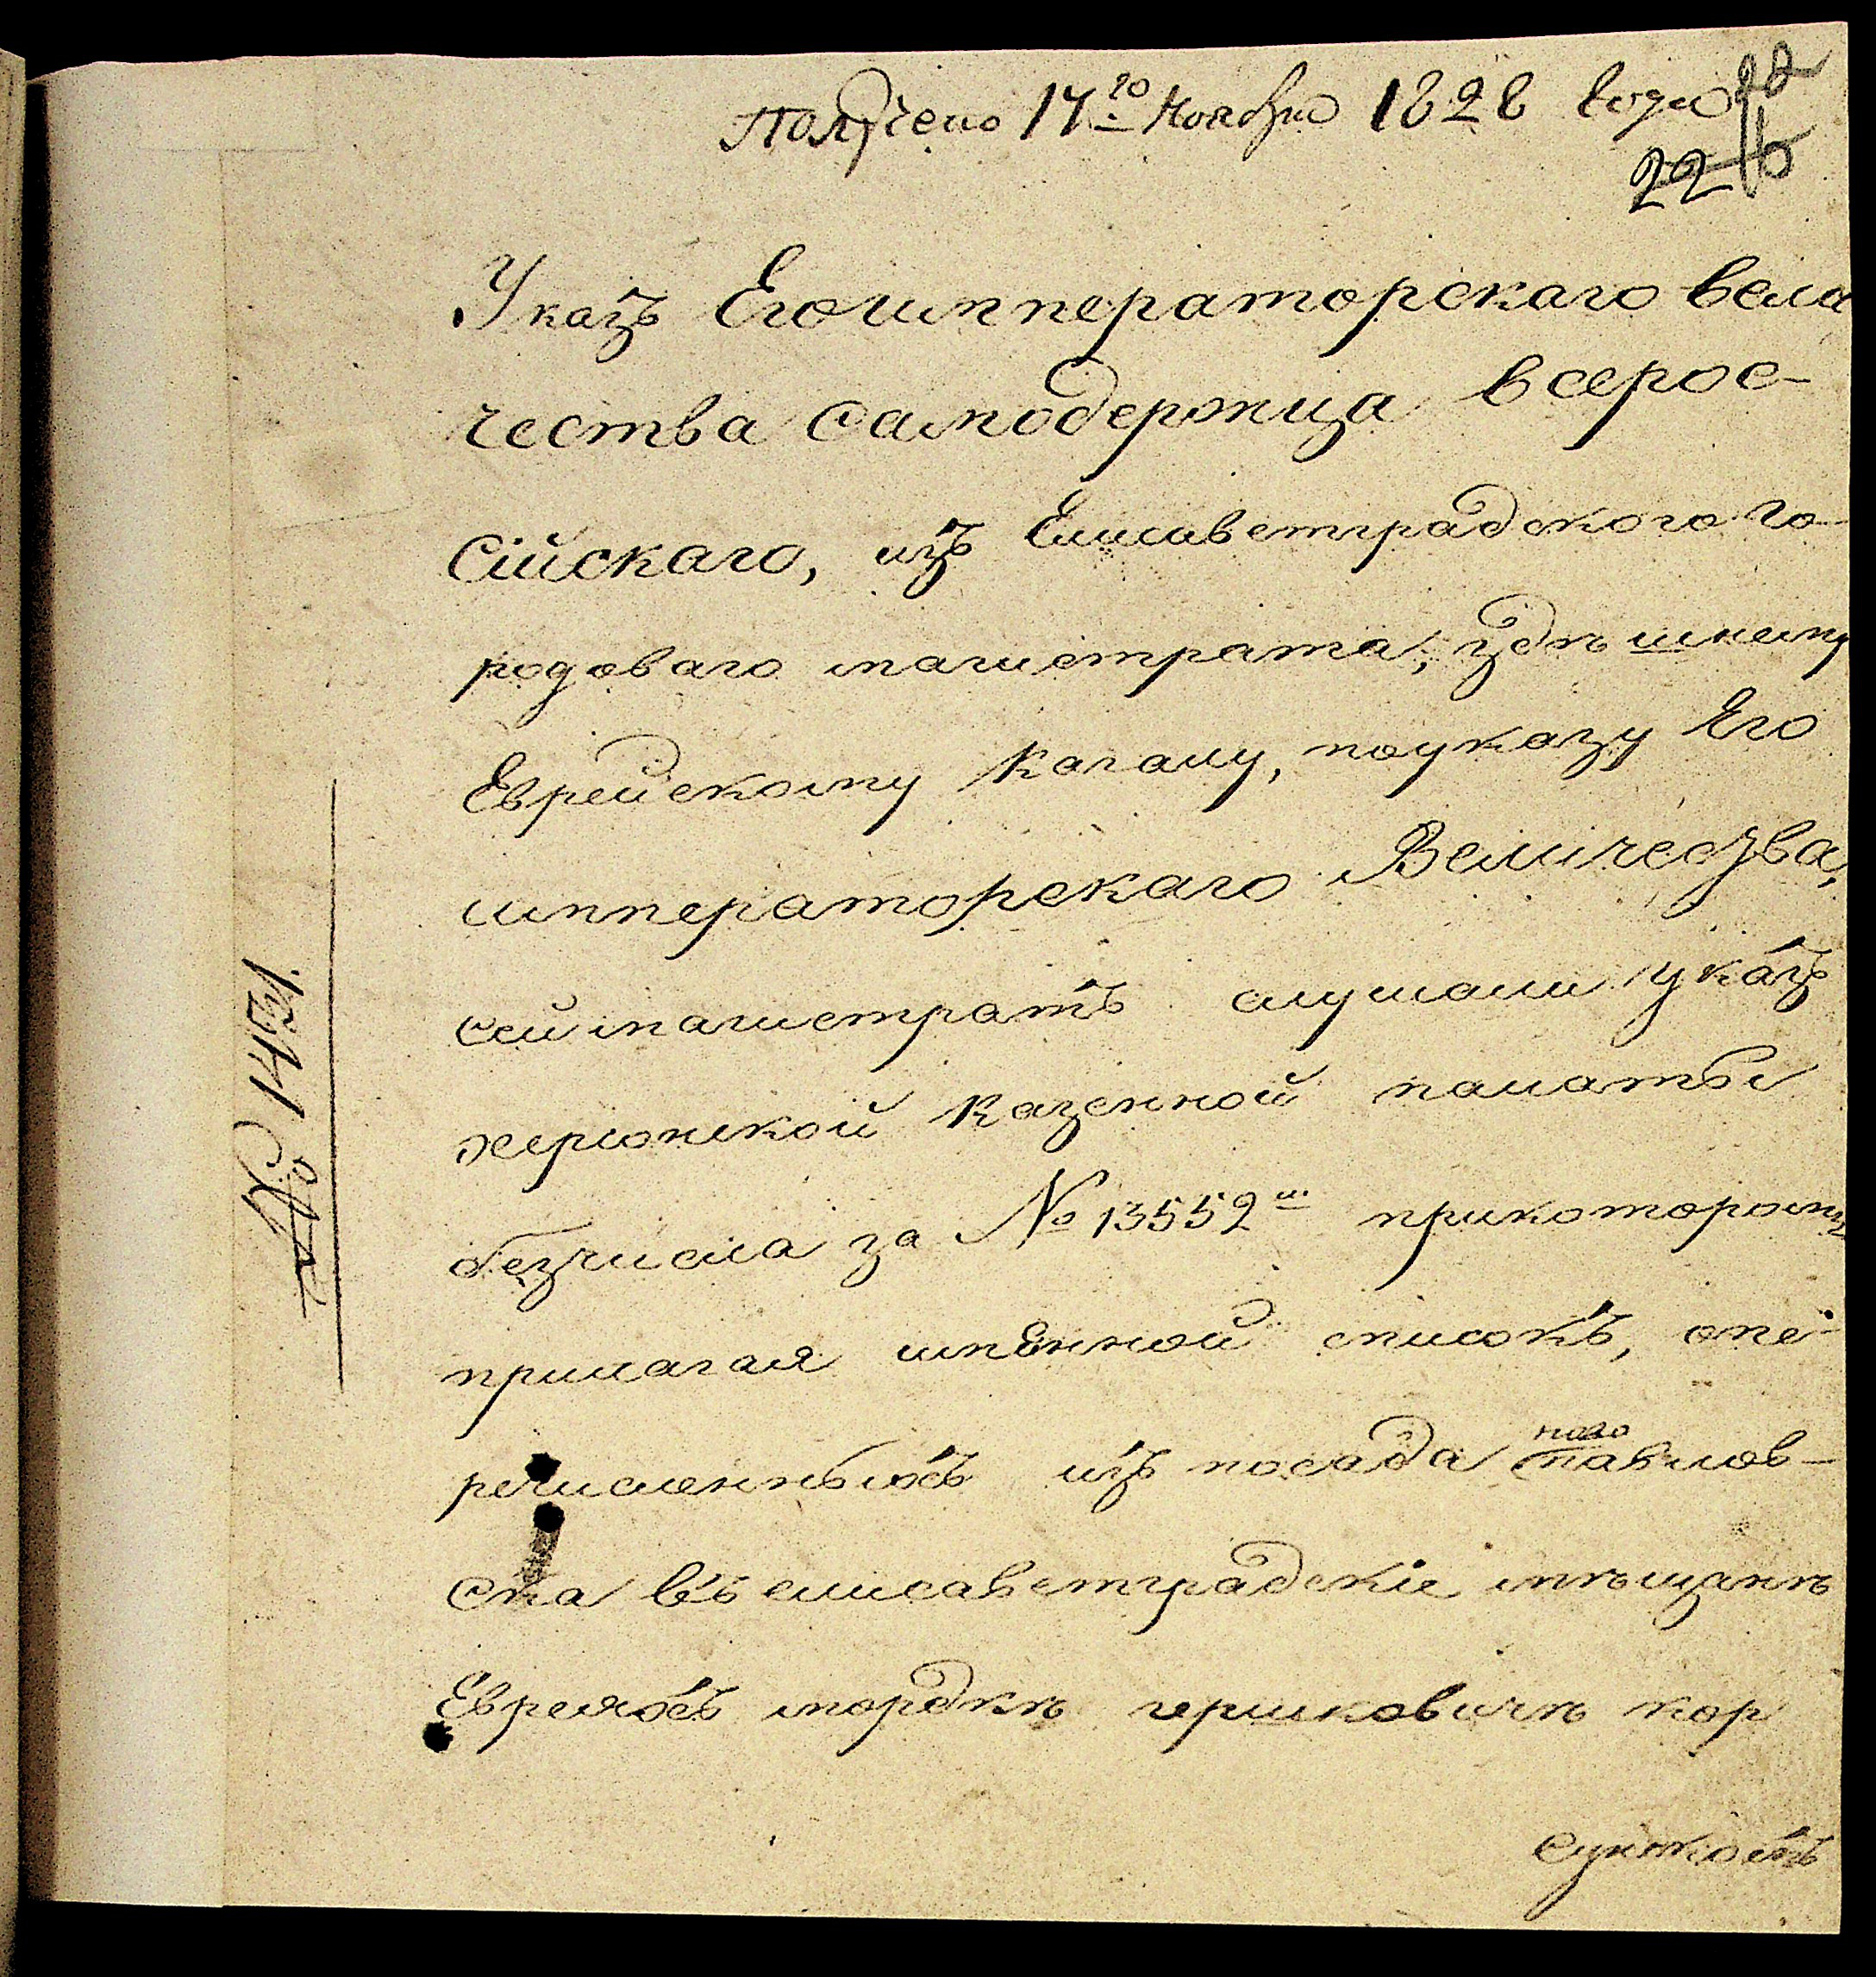 Получено 17го Ноября 1828 года
22
Указъ Его императорскаго вели
чества самодержца всерос-
сійскаго, изъ Елисаветградского го-
родоваго магистрата, здѣшнему
Еврейскому Кагалу, поуказу Его
императорскаго Величества,
сей магистратъ слушали указъ
херсонской Казенной палаты
безчисла за № 13552м прикоторомъ
прилагая имянной списокъ, опе-
речисленныхъ изъ посада ново
павлов-
ска въ елисаветградскіе мѣщанѣ
Евреяхъ мордкѣ гершковичѣ кор
сунском
№ 1451.